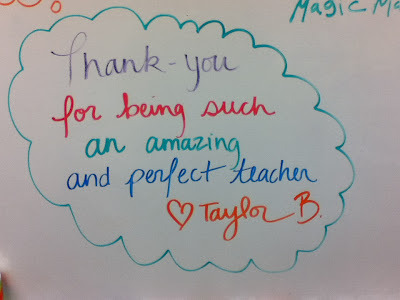 Magic Ma
Thank-you
for being such
an amazing
and perfect teacher
♡ Taylor B.